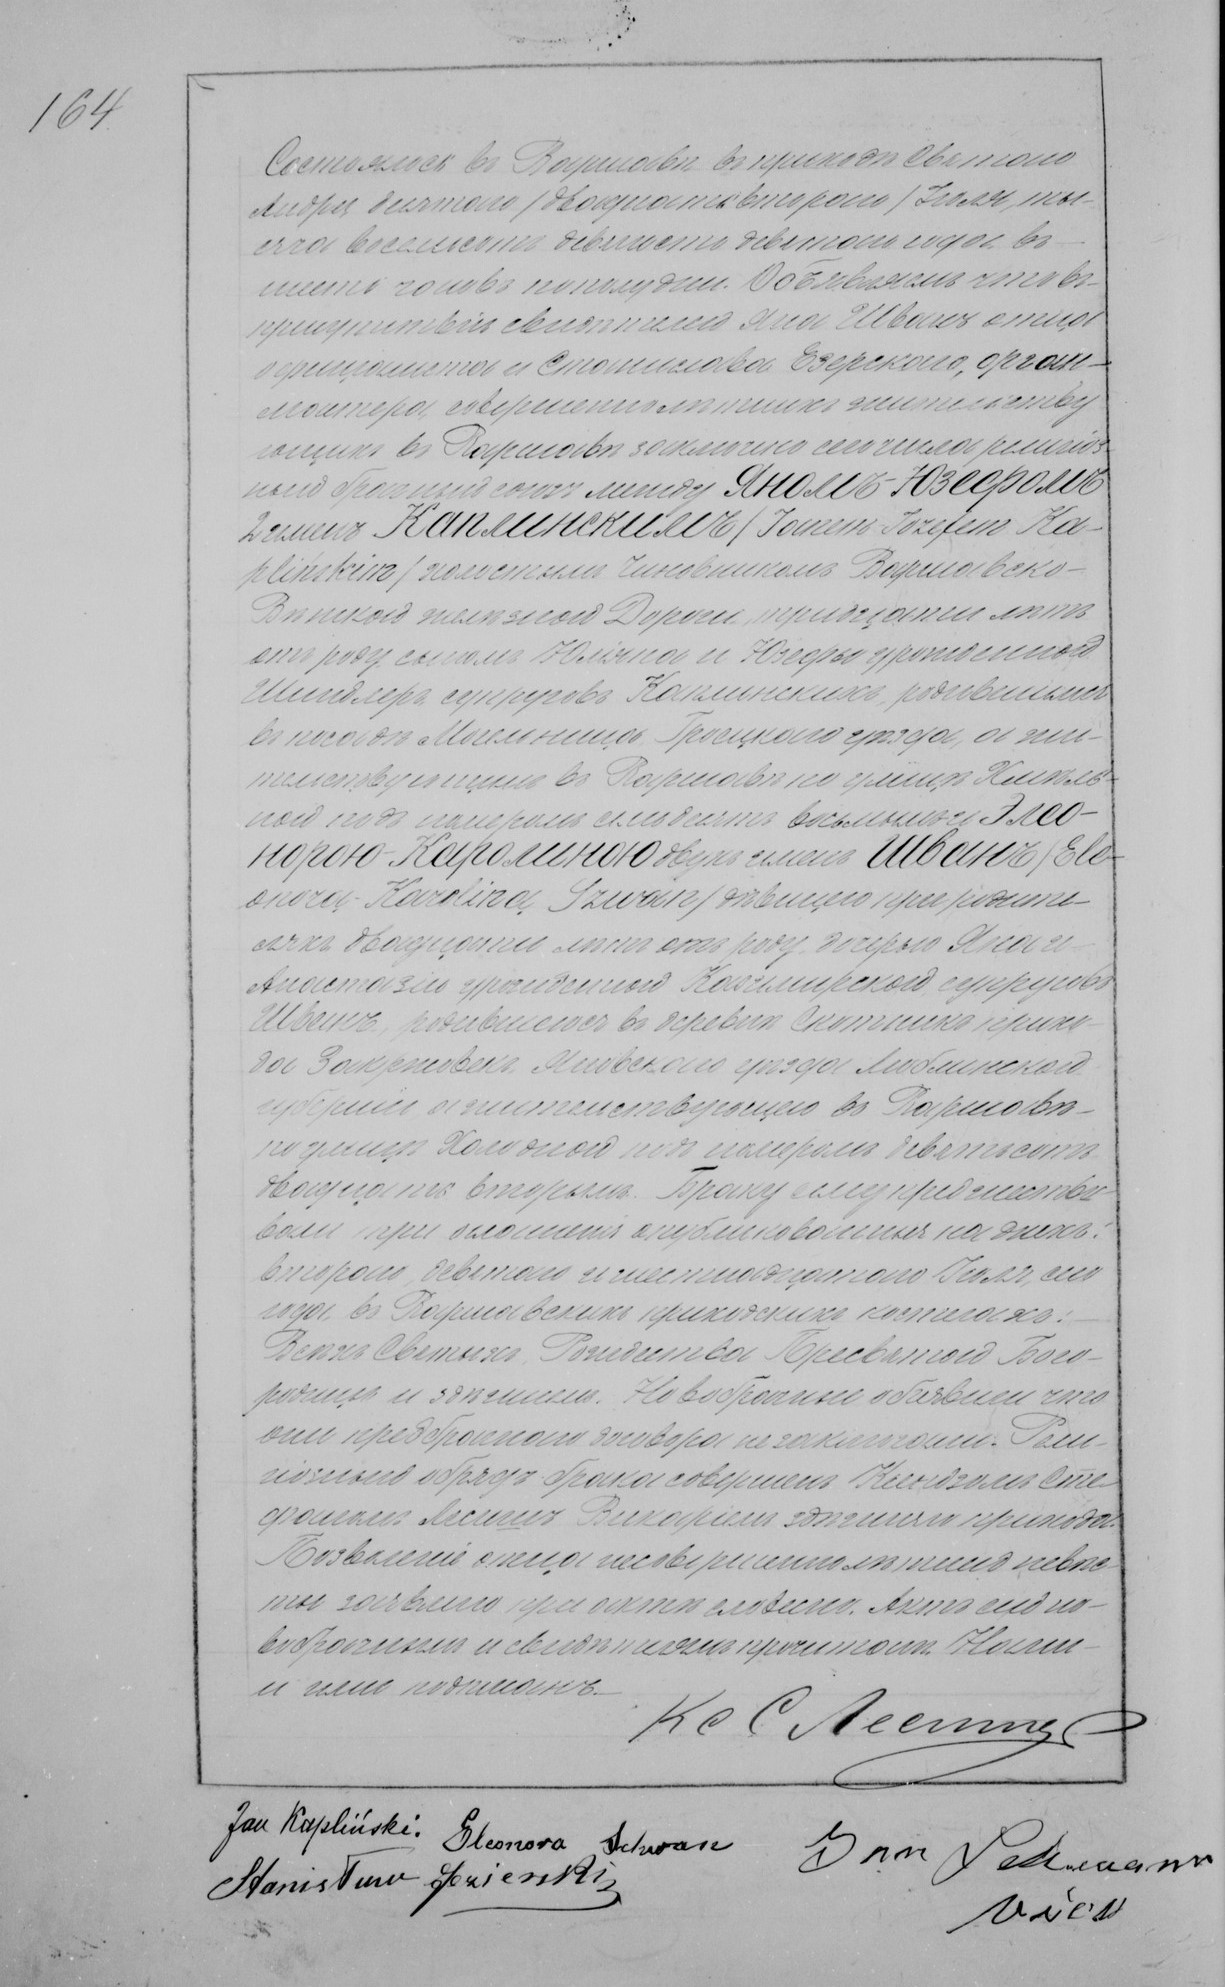 164
Состоялось въ Варшавѣ въ приходѣ Святаго
Андрея девятаго /двадцать втораго/ Іюля, ты-
сяча восемьсотъ девяносто девятаго года въ
шесть часовъ пополудни. Объявляемъ что въ
присутствіи свидѣтелей Яна Шванъ отца
оффиціалиста и Станислава Езерскаго, орган-
мастера, совершеннолѣтнихъ жительству
ющихъ въ Варшавѣ заключенъ сего числа религіоз-
ный брачный союзъ между Яномъ-Юзефомъ
2 именъ Каплинскимъ /Janem Józefem Ka-
plińskim/ холостымъ чиновникомъ Варшавско-
Вѣнской желѣзной Дороги, тридцати лѣтъ
отъ роду, сыномъ Юліяна и Юзефы урожденной
Шиндлеръ супруговъ Каплинскихъ, родившимся
въ посадѣ Могельница Гроецкаго уѣзда, а жи-
тельствующимъ въ Варшавѣ по улицѣ Хмѣль-
ной подъ номеромъ семьдесятъ восьмымъ и Элео-
норою-Каролиною двухъ именъ Шванъ /Ele-
onorą-Karoliną Szwan/ дѣвицею при родите-
ляхъ двадцати лѣтъ отъ роду, дочерью Яна и
Анастазіи урожденной Казимирской супруговъ
Шванъ, родившеюся въ деревнѣ прихо-
да Закржовекъ Яновскаго уѣзда Люблинской
губерніи а жительствующею въ Варшавѣ
по улицѣ Холодной подъ номеромъ девятьсотъ
двадцать вторымъ. Браку сему предшество-
вали три оглашенія опубликованныя на дняхъ:
втораго, девятаго и шестнадцатаго Іюля, сего
года въ Варшавскихъ приходскихъ костелахъ:
Всѣхъ Святыхъ, Рождества Пресвятой Бого-
родицы и здѣшнемъ. Новобрачные объявили что
они предбрачнаго договора не заключали. Рели-
гіозный обрядъ брака совершенъ Ксендзомъ Сте-
фаномъ Викаріемъ здѣшняго прихода.
Позволеніе отца несовершеннолѣтней невѣс-
ты заявлено при актѣ словесно. Актъ сей но-
вобрачнымъ и свидѣтелямъ прочитанъ Нами
и ими подписанъ.
Кс С
Jan Kapliński. Eleonora Schwan
Stanisław Jezierski
Jan